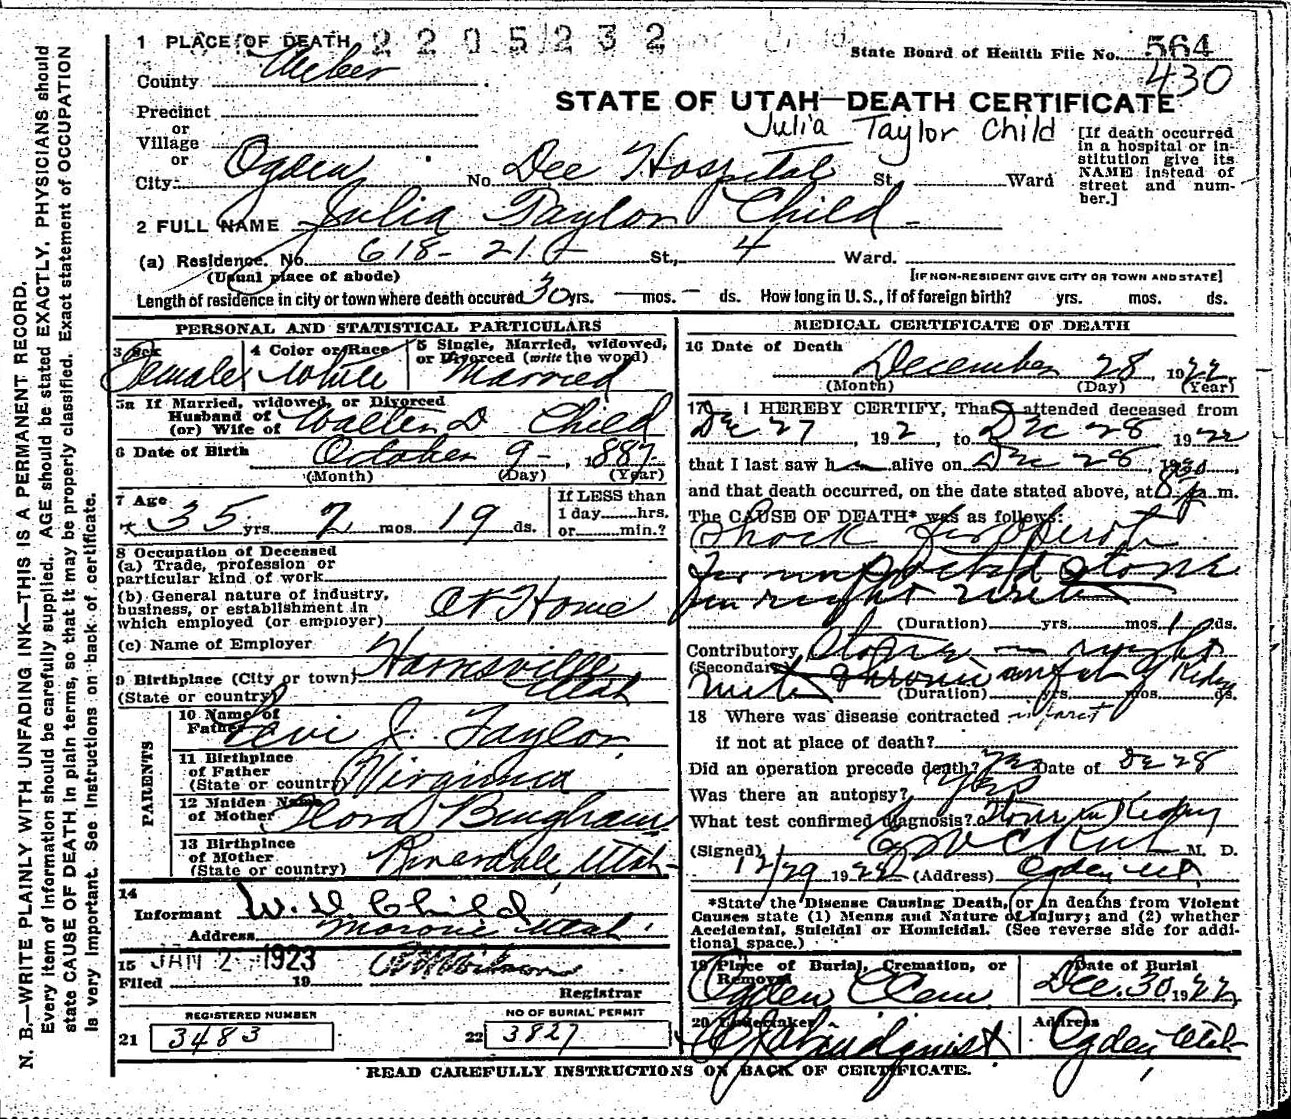 1 PLACE OF DEARTH 2205232
State Board of Health File No. 564
County Weber 430
Precinct
STATE OF UTAH—DEATH CERTIFICATE
or
Village
Julia Taylor Child
or
City Ogden No. Dee Hospital St. Ward
[If death occurred in a hospital or institution give its NAME instead of street and number.]
2 FULL NAME Julia Taylor Child
(a) Residence. No. 618-21. St., 4 Ward.
(Usual place of abode) [IF NON-RESIDENT GIVE CITY OR TOWN AND STATE]
Length of residence in city or town where death occured 30 yrs. — mos. — ds. How long in U. S., if of foreign birth? yrs. mos. ds.
PERSONAL AND STATISTICAL PARTICULARS
3 Sex Female
4 Color or Race White
5 Single, Married, widowed, or Divorced (write the word) Married
5a If Married, widowed, or Divorced
Husband of
(or) Wife of Walter D. Child
6 Date of Birth October 9-, 1887
(Month) (Day) (Year)
7 Age 35 yrs. 2 mos. 19 ds.
If LESS than
1 day......hrs.
or......min.?
8 Occupation of Deceased
(a) Trade, profession or
particular kind of work
(b) General nature of industry,
business, or establishment in
which employed (or employer) At Home
(c) Name of Employer
9 Birthplace (City or town) Harrisville
(State or country) Utah
PARENTS
10 Name of
Father Levi J. Taylor
11 Birthplace
of Father
(State or country) Virginia
12 Maiden Name
of Mother Flora Bingham
13 Birthplace
of Mother
(State or country) Riverdale, Utah
14
Informant W. D. Child
Address Utah
15 JAN 2 1923
Filed 19
Registrar
REGISTERED NUMBER
21 3483
NO OF BURIAL PERMIT
22 3827
MEDICAL CERTIFICATE OF DEATH
16 Date of Death December 28, 1922
(Month) (Day) (Year)
17 I HEREBY CERTIFY, That I attended deceased from
Dec 27, 192 , to Dec 28 1922
that I last saw h alive on Dec 28, 19
and that death occurred, on the date stated above, at 8 p.m.
The CAUSE OF DEATH* was as follows:
Shock
For impacted stone
in right
(Duration) yrs. mos. 1 ds.
Contributory Stone in right
(Secondary) Kidney
(Duration) yrs. mos. ds.
18 Where was disease contracted
if not at place of death?
Did an operation precede death? Yes Date of Dec 28
Was there an autopsy? Yes
What test confirmed diagnosis? Stone in Kidney
(Signed) M. D.
12/29 1922 (Address) Ogden Ut.
*State the Disease Causing Death, or in deaths from Violent
Causes state (1) Means and Nature of Injury; and (2) whether
Accidental, Suicidal or Homicidal. (See reverse side for addi-
tional space.)
19 Place of Burial, Cremation, or
Removal Ogden Cem
Date of Burial
Dec. 30 1922
20 Undertaker Lindquist
Address
Ogden, Utah
READ CAREFULLY INSTRUCTIONS ON BACK OF CERTIFICATE.
N. B.—WRITE PLAINLY WITH UNFADING INK—THIS IS A PERMANENT RECORD.
Every item of information should be carefully supplied. AGE should be stated EXACTLY. PHYSICIANS should
state CAUSE OF DEATH in plain terms, so that it may be properly classified. Exact statement of OCCUPATION
is very important. See Instructions on back of certificate.